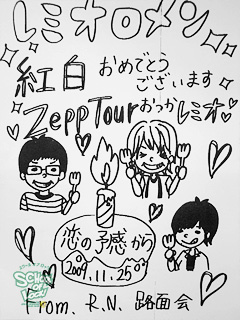 レミオロメン
紅白 おめでとう
ございます
Zepp Tour おつかレミオ
恋の予感から
2009.11.25
From. R.N. 路面会
SCHOOL OF LOCK!